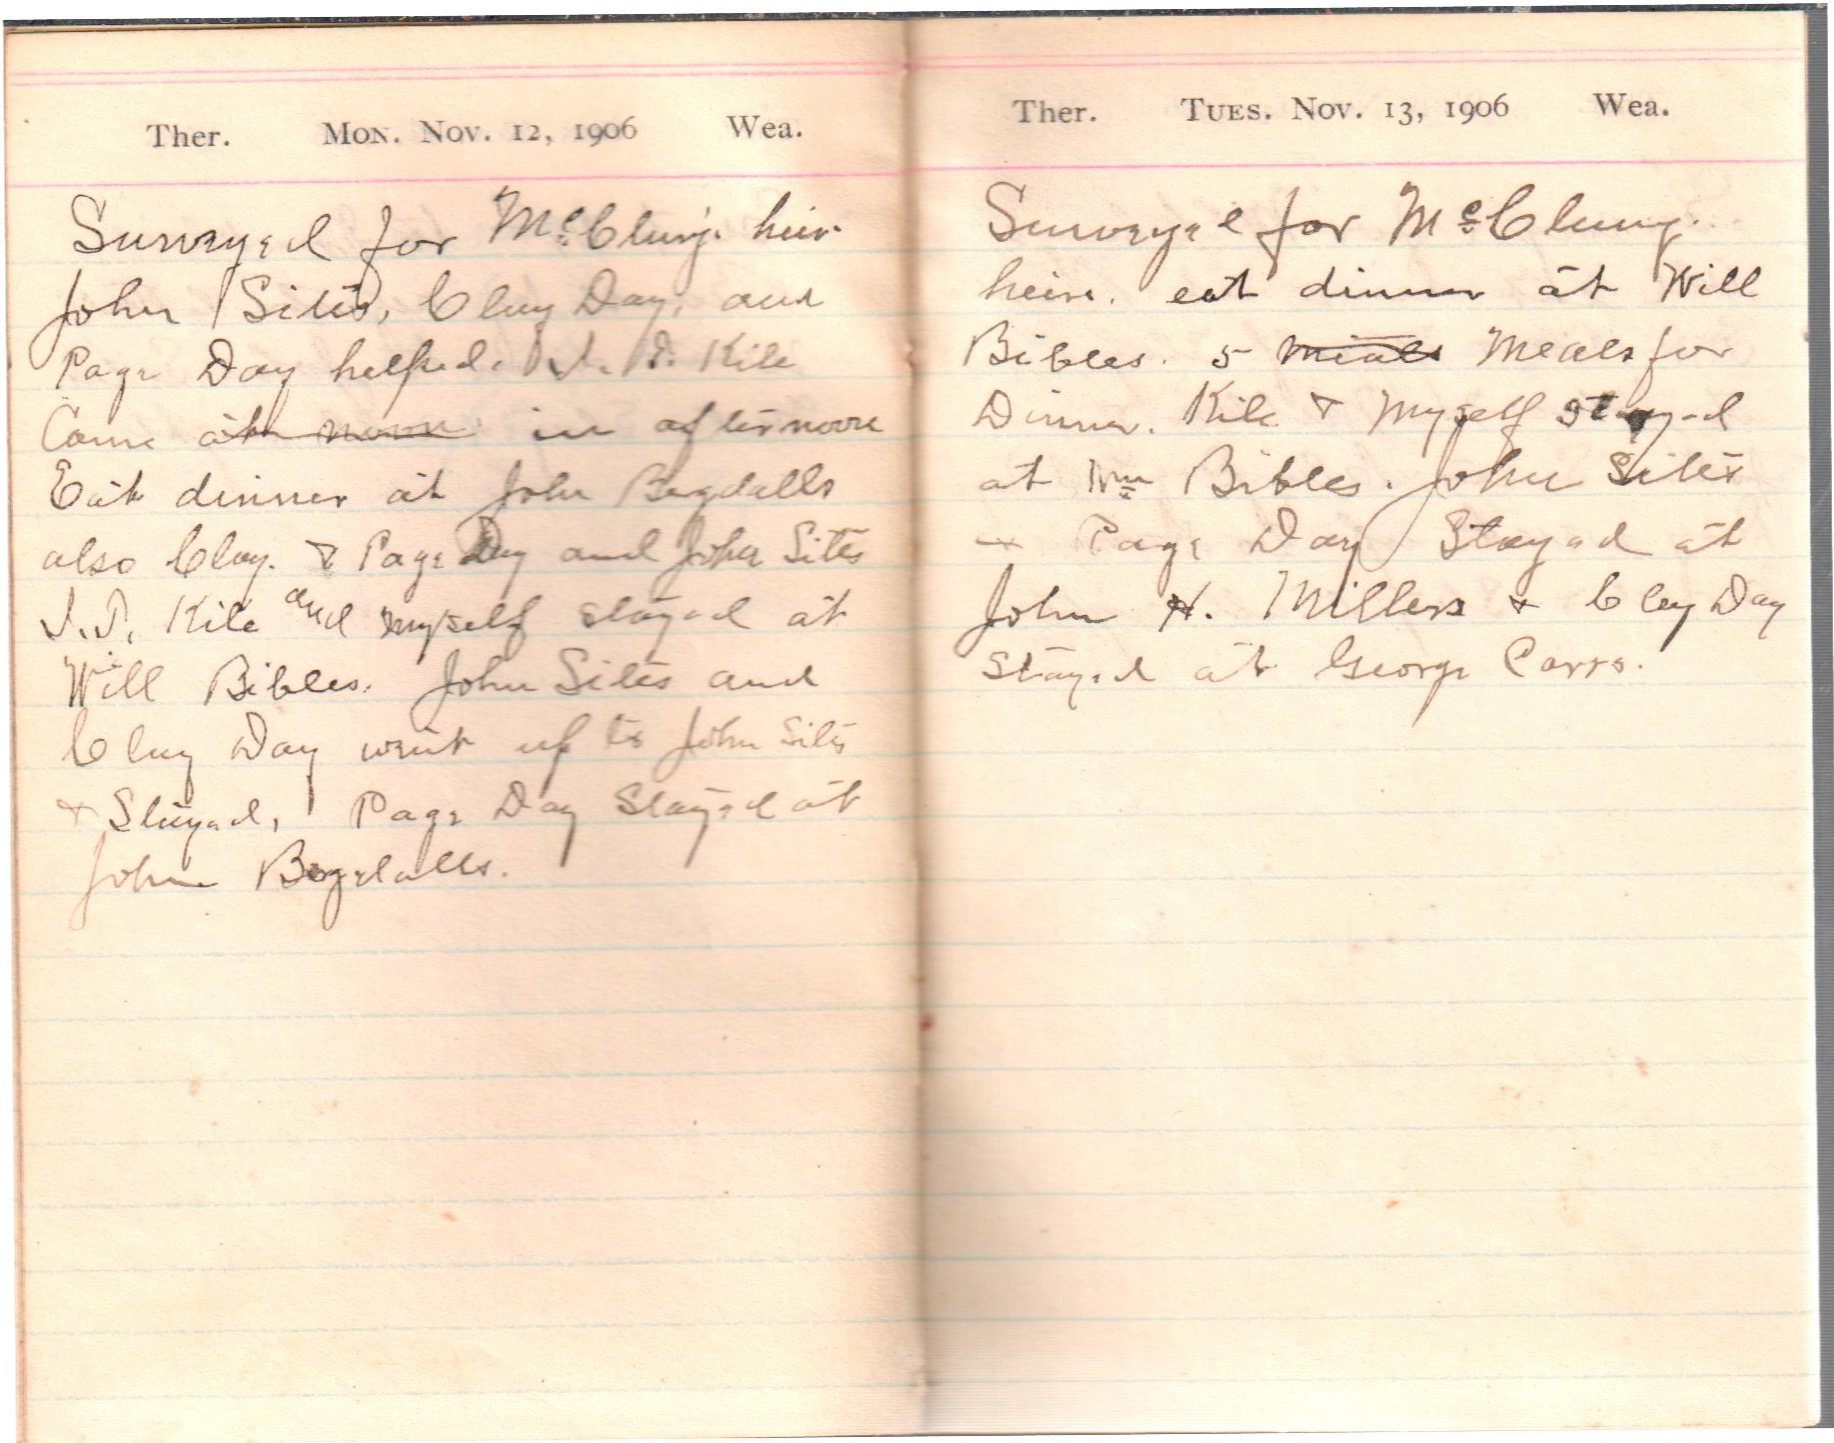 Ther. Mon. Nov. 12, 1906 Wea.
Surveyed for McClung heirs
John Sites, Clay Day, and
Page Day helped. I. T. Kile
Came at noon in afternoon
Eat dinner at John Bogdalls
also Clay. & Page Day and John Sites
I. T. Kile and myself stayed at
Will Bibles. John Sites and
Clay Day went up to John Sites
& Stayed, Page Day Stayed at
John Bogdalls.
Ther. Tues. Nov. 13, 1906 Wea.
Surveyed for McClung
heirs. eat dinner at Will
Bibles. 5 meals Meals for
Dinner. Kile & Myself stayed
at Wm Bibles. John Sites
& Page Day Stayed at
John H. Millers & Clay Day
stayed at George Carrs.